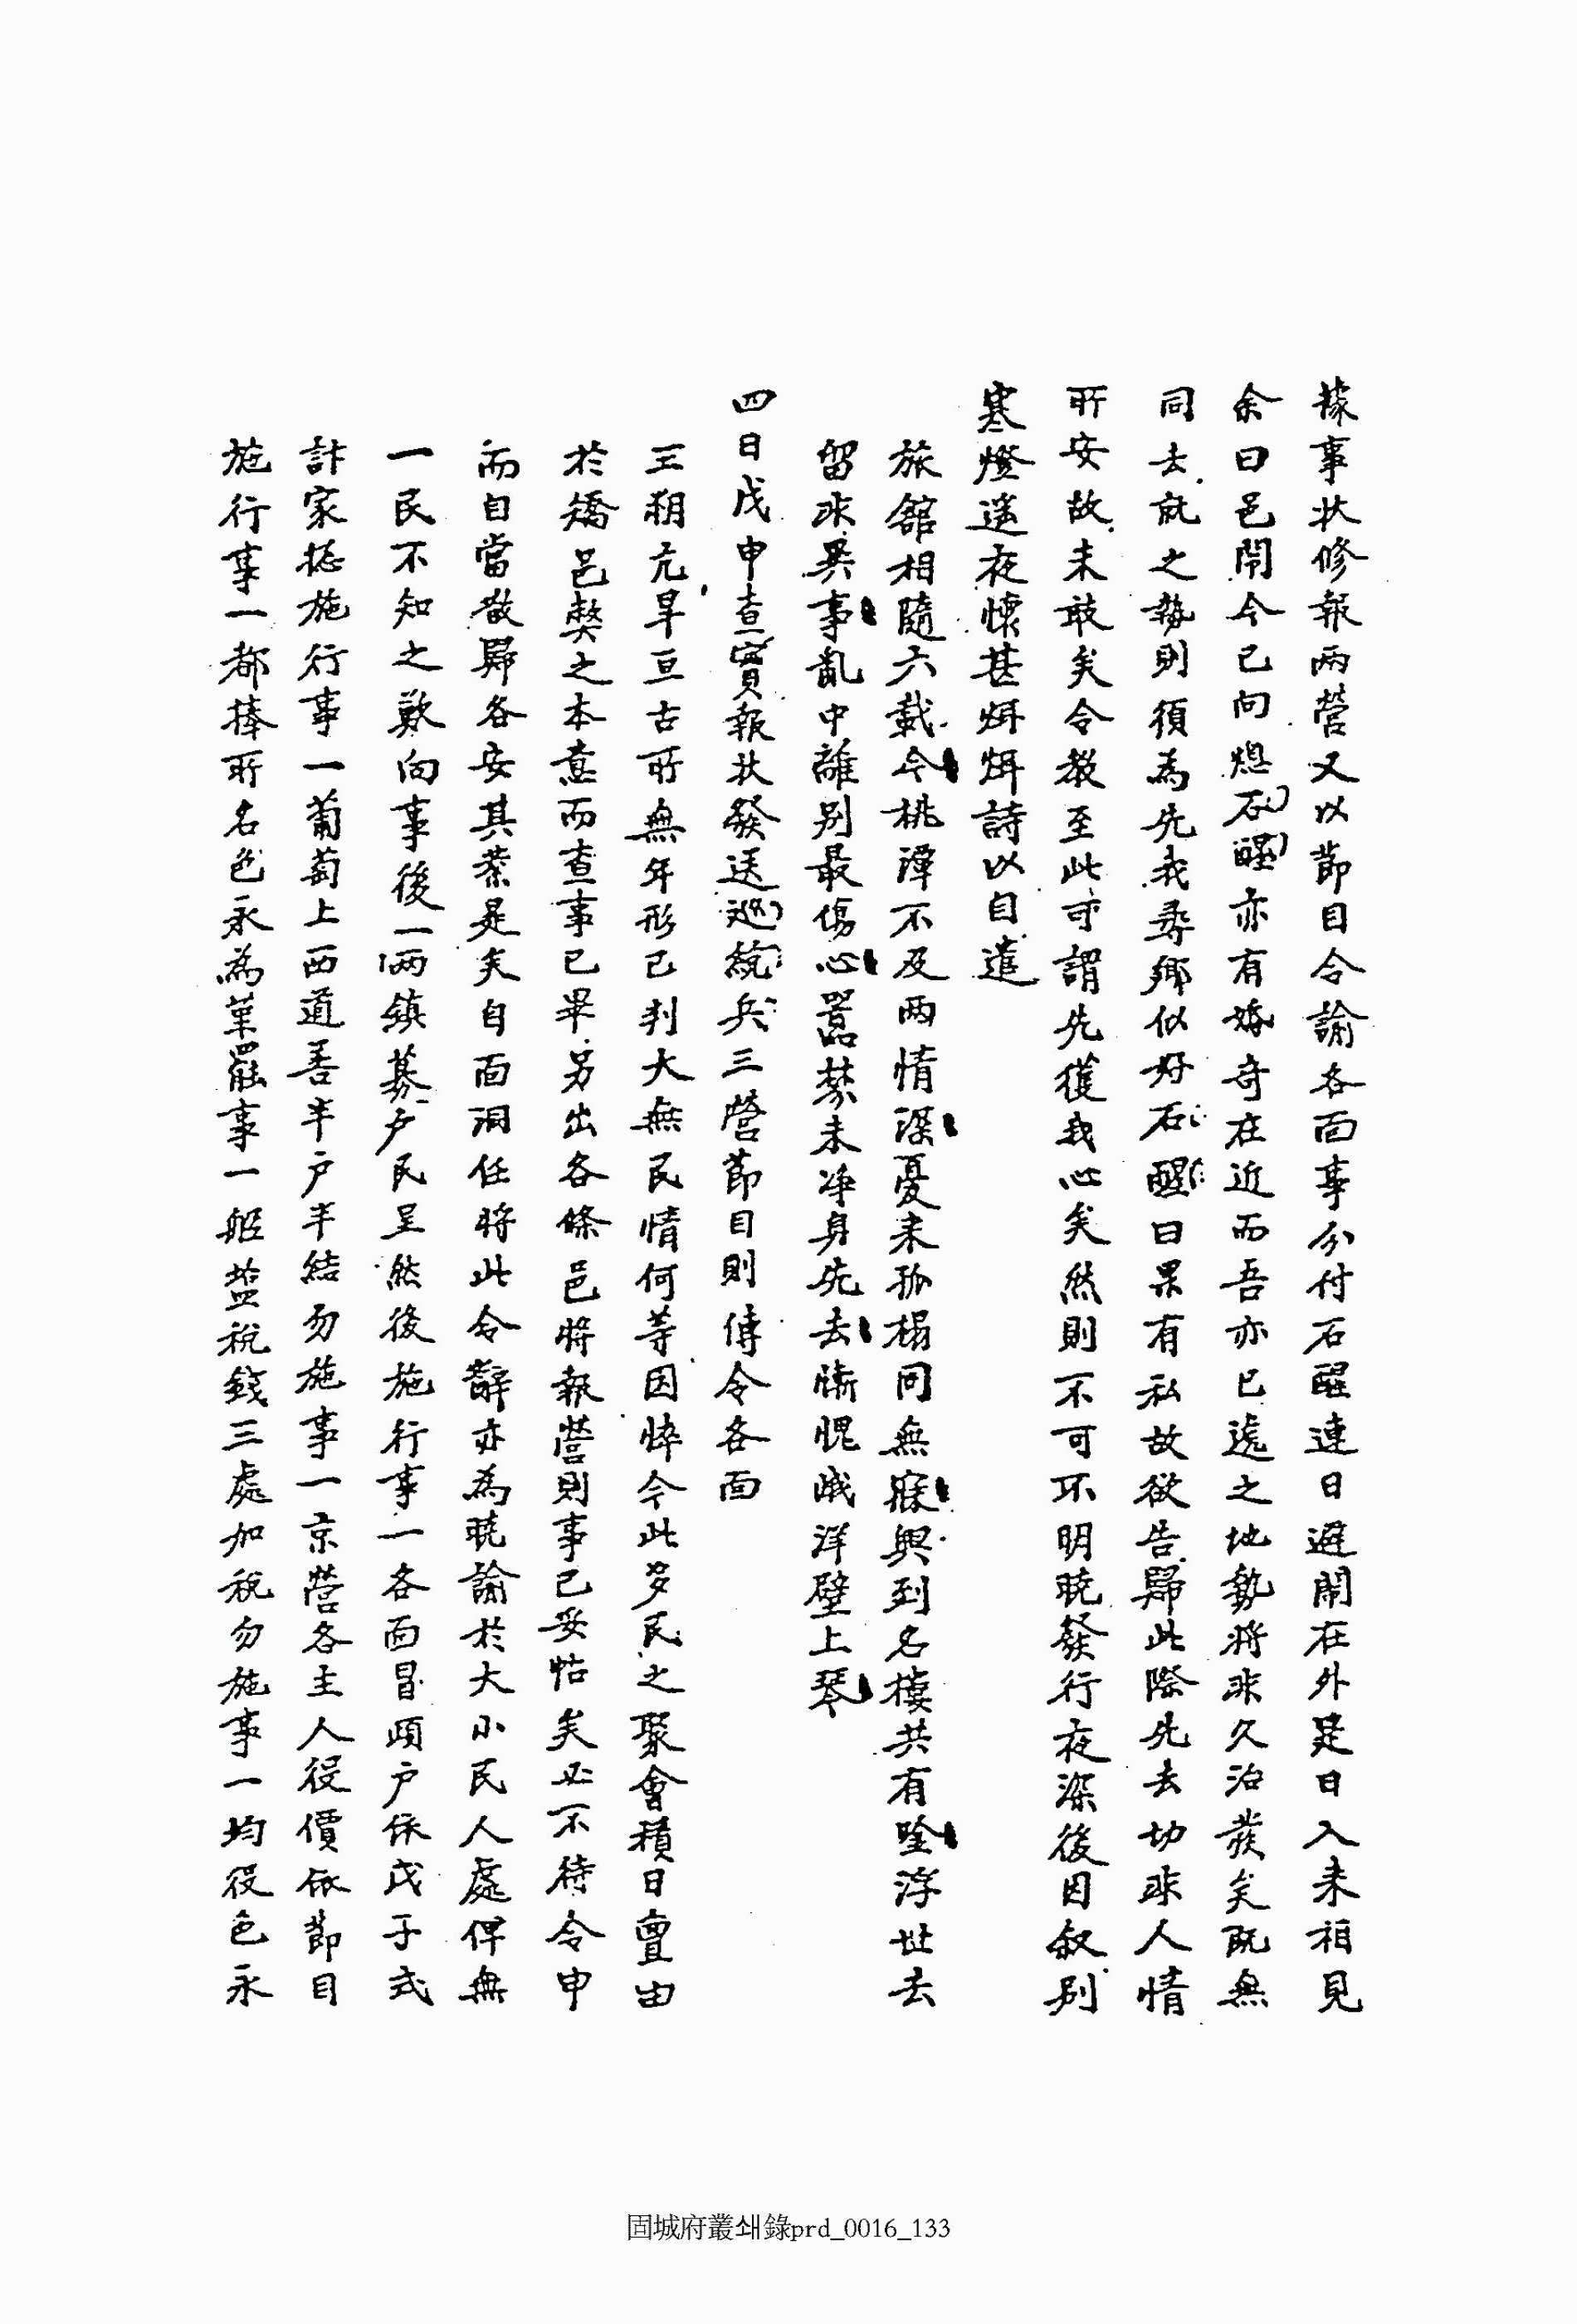 據事狀修報兩營又以節目令諭各面事分付石醒連日遲鬧在外是日入來相見
余曰邑鬧今已向熄石醒亦有婚奇在近而吾亦已遞之地勢將非久治發矣既無
同去就之勢則須為先我尋鄉似好石醒曰果有私故欲告歸此際先去切非人情
所安故未敢矣令教至此可謂先獲我心矣然則不可不明曉發行夜深後因叙別
寒燈遙夜懷甚耿耿詩以自遣
旅館相隨六載今桃潭不及兩情深憂來孤榻同無寐興到名樓共有唫浮世去
留非異事亂中離别最傷心囂塵未净身先去慚愧峨洋壁上琴
四日戊申查實報狀發送巡統兵三營節目則傳令各面
王朔亢旱亘古所無年形已判大無民情何等因悴今此多民之聚會積日亶由
於矯邑弊之本意而查事已畢另出各條邑將報營則事已妥怙矣必不待令申
而自當散歸各安其業是矣自面洞任將此令辭亦為曉諭於大小民人處俾無
一民不知之歎向事後一兩鎮募戶民呈然後施行事一各面冒頉戶依戊子式
計家摠施行事一葡萄上西道善半戶半結勿施事一京營各主人役價依節目
施行事一都捧所名色永為革罷事一船塩稅錢三處加稅勿施事一均役色永